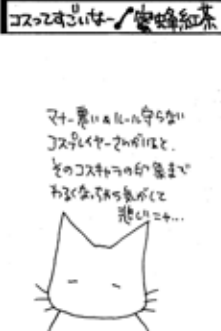 コスってすごいなー♪蜜蜂紅茶
マナー悪い&ルール守らない
コスプレイヤーさんがいると、
そのコスキャラの印象まで
わるくなっちゃう気がして
悲しいニャ...